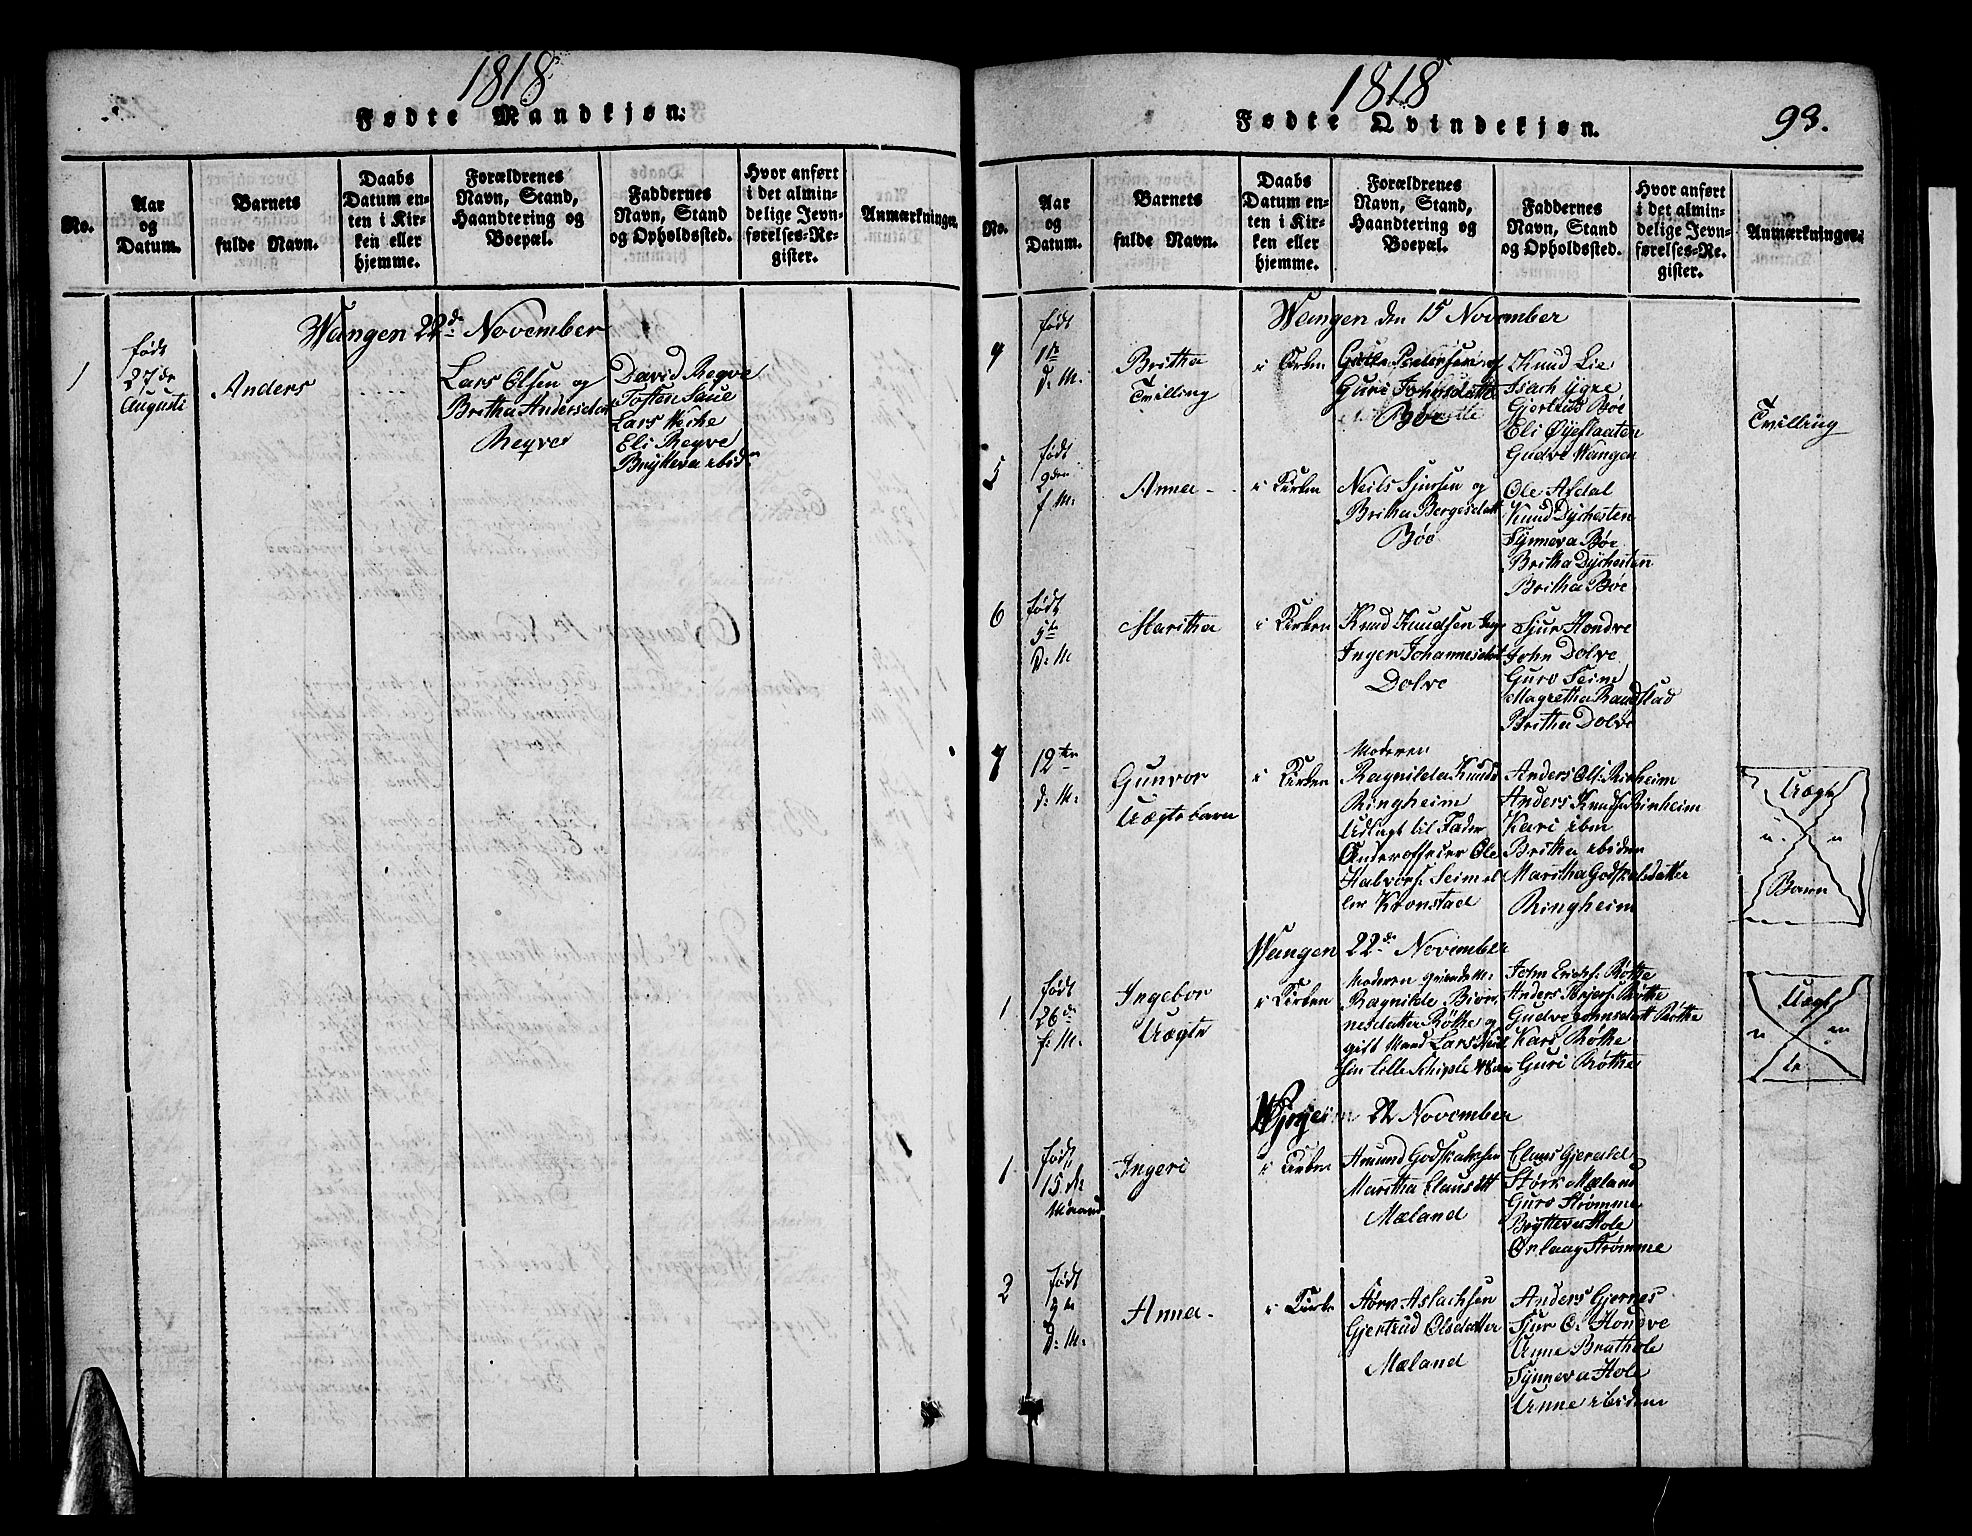 1818
Fødte Mandkjøn.
No.
Aar
og
Datum.
Barnets
fulde Navn.
Daabs
Datum en-
ten i Kir-
ken eller
hjemme.
Forældrenes
Navn, Stand,
Haandtering og
Boepæl.
Faddernes
Navn, Stand
og Opholdssted.
Hvor anført
i det almin-
delige Jevn-
førelses-Re-
gister.
Anmærkninger.
Wangen 22de November
1
født
27de
Augusti
Anders
Lars Olsen og
Britha Andersdat
Reqve
David Reqve
Tosten Saue
Lars
Eli Reqve
Bryteva ibid
1818
Fødte Qvindekjøn.
93.
No.
Aar
og
Datum.
Barnets
fulde Navn.
Daabs
Datum en-
ten i Kir-
ken eller
hjemme.
Forældrenes
Navn, Stand,
Haandtering og
Boepæl.
Faddernes
Navn, Stand
og Opholdssted.
Hvor anført
i det almin-
delige Jevn-
førelses-Re-
gister.
Anmærkninger.
Wangen den 15 November
4
født
1ste
d: M.
Britha
Tvilling
i Kirken
Guri
Bøe
Knud Lie
Isach Ygre
Gjertrud Bøe
Eli Øyeflaaten
Gudve Wangen
Tvilling
5
født
2den
f M.
Anna
i Kirken
Neils Sjursen og
Britha Bergesdatt
Bøe
Ole Afdal
Knud Dychesten
Synneva Bøe
Britha Dychesten
Britha Bøe
6
født
5te
D: M
Maritha
i Kirken
Knud Knudsen
Inger Johannesdat
Dolve
Sjur Hondve
John Dolve
Guro Seim
Magretha Raudstad
Britha Dolve
7
12ten
d: M.
Gunvor
Uægtebarn
i Kirken
Moderen
Ragnilda Knuds
Ringheim
Udlagt til Fader
Underofficier Ole
Halvors. Seim el
ler Kronstad
Anders Ols. Rinheim
Anders Knuds. Rinheim
Kari ibm
Britha ibiden
Maritha Godskalsdatter
Ringheim
Uægte
Barn
Wangen 22de November
1
født
26de
f: M.
Ingebor
Uægte
i Kirken
Moderen
Ragnilde Biør
nesdatter Røthe og
gift Mand Lars
sen Lille
John Erichs. Røthe
Anders Røthe
Gudve Johnsdatt Røthe
Kari Røthe
Guri Røthe
Uægt
te
22 November
1
født
15. de
Maaned
Ingeri
i Kirken
Amund Godskalksen
Maritha Clausdtt
Mæland
Claus Gjerald
Størk Mæland
Guro Strømme
Brytteva Hole
Orlaag Strømme
2
født
9de
d: M.
Anna
i Kirken
Størk Aslachsen
Gjertrud Olsdatter
Mæland
Anders Gjernes
Sjur O. Hondve
Anne Brathole
Synneva Hole
Anne ibidem